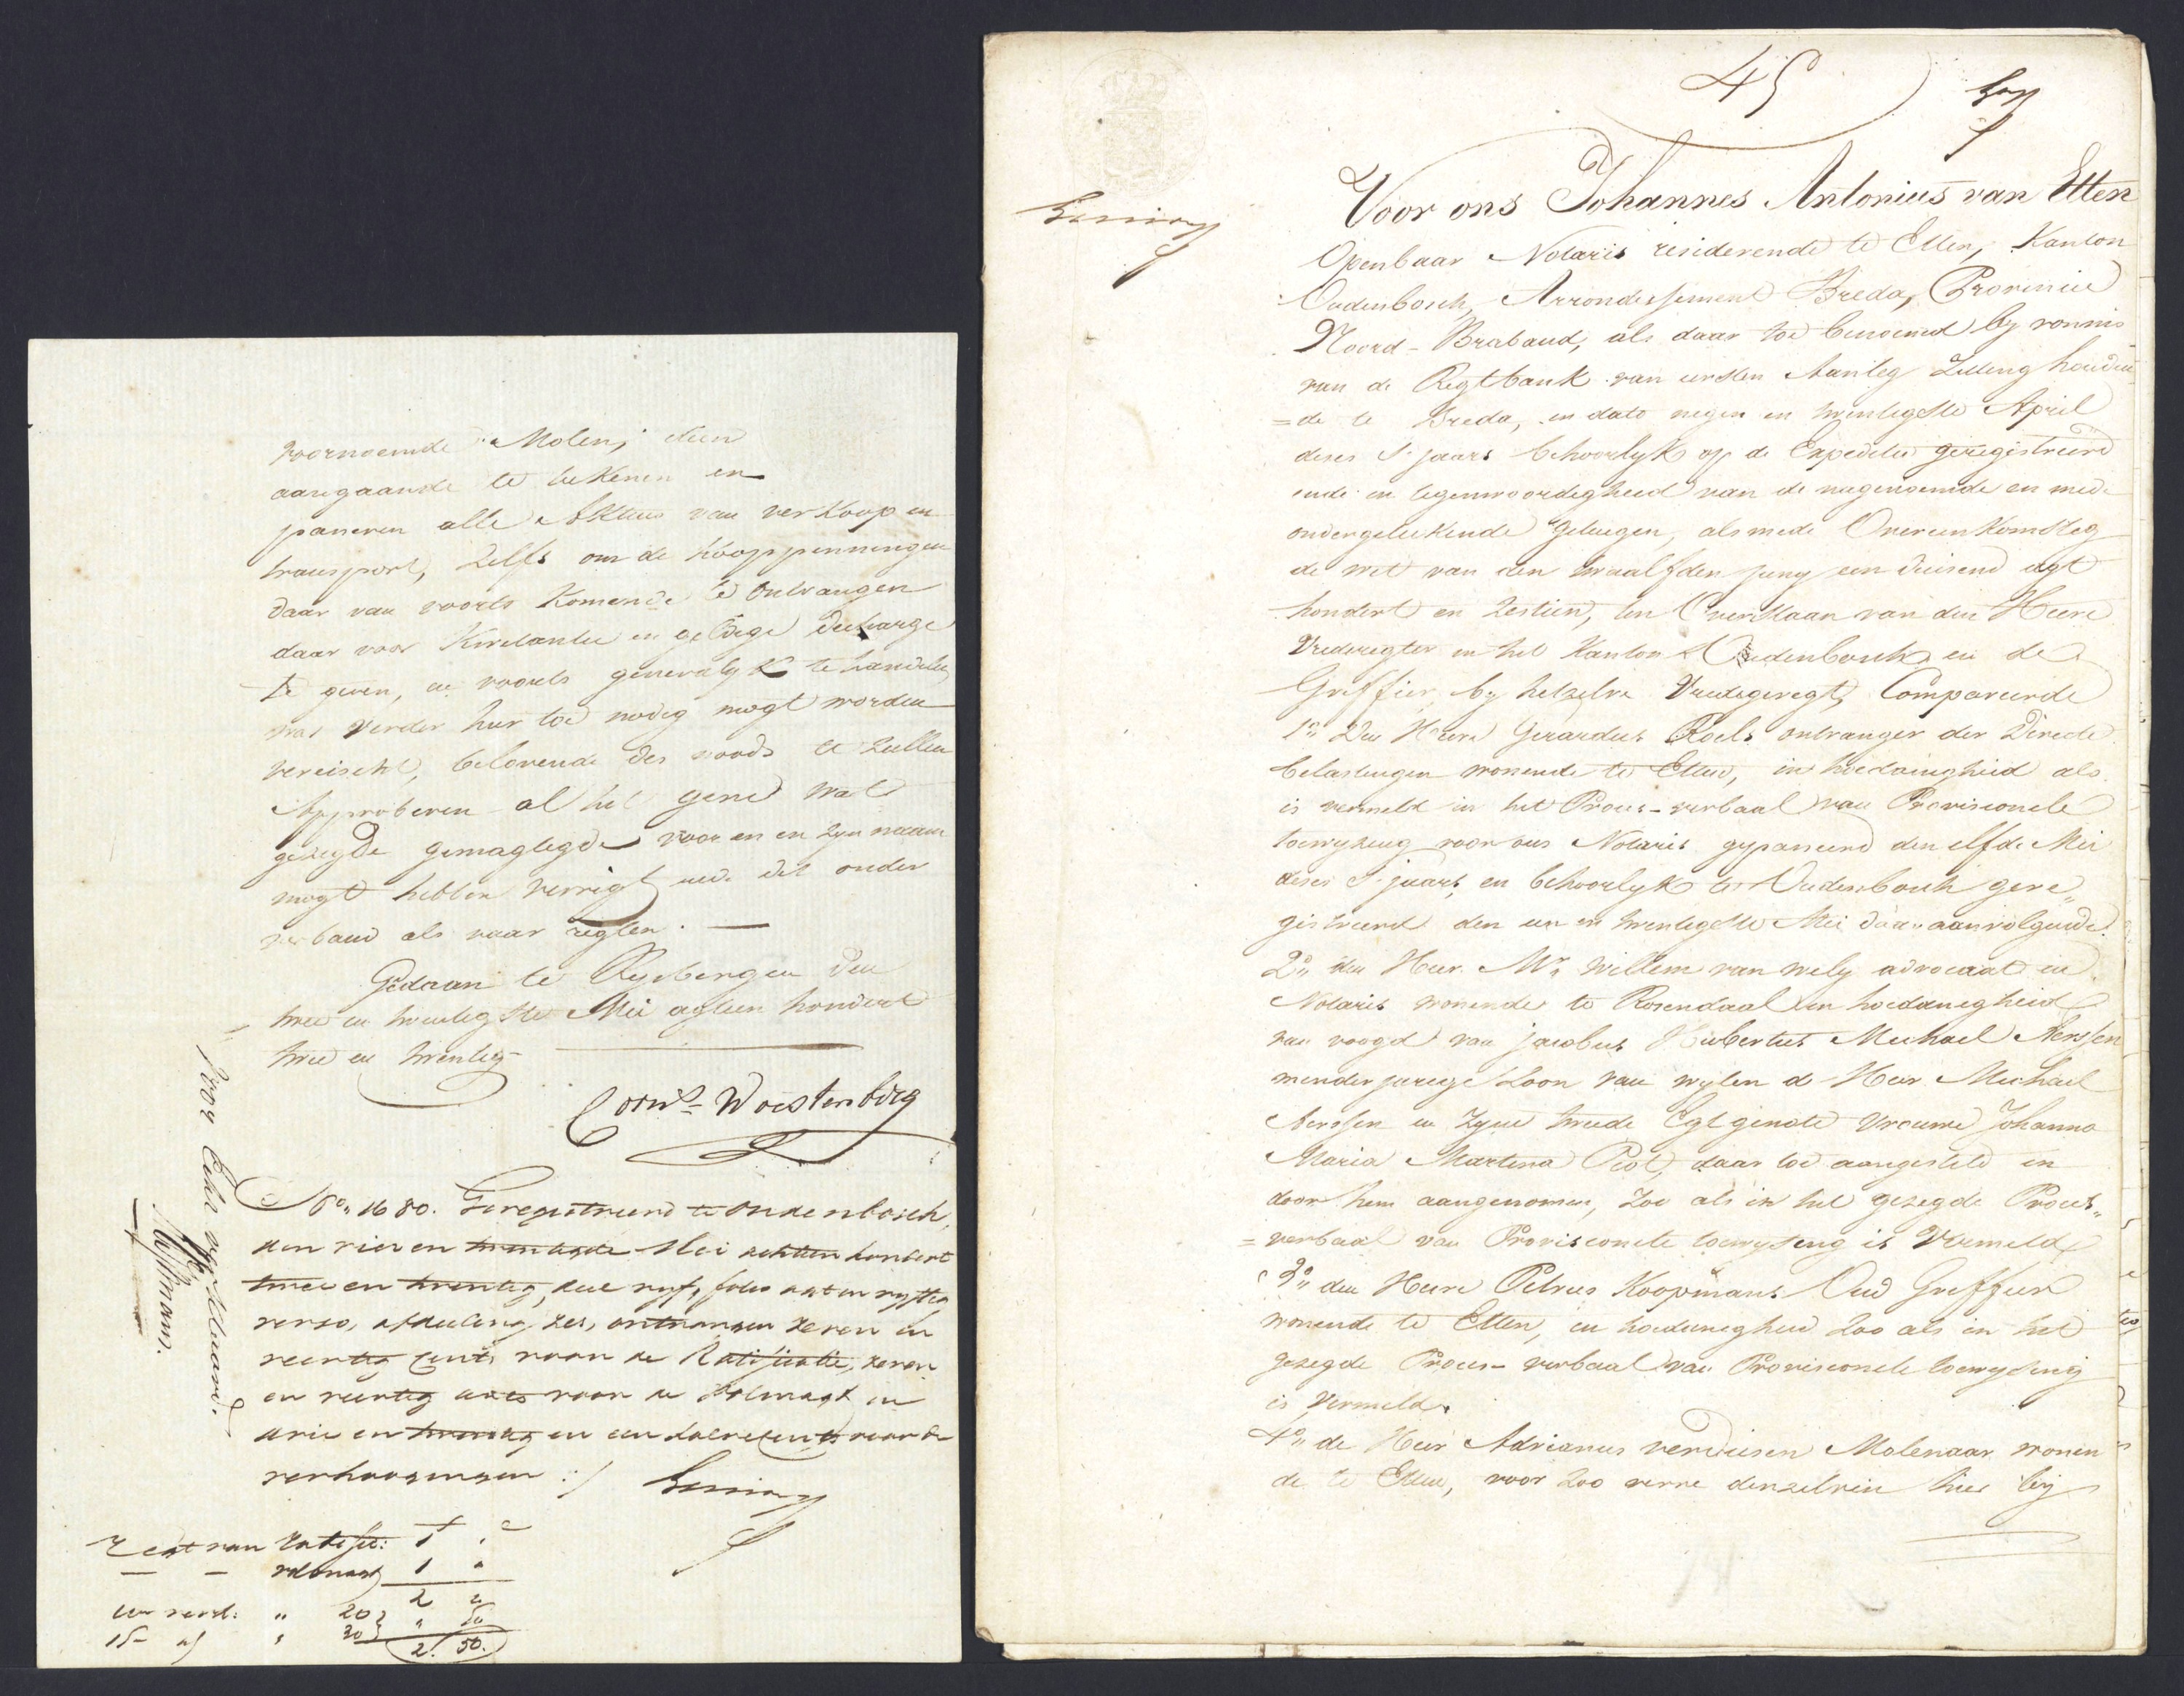 voornoemde Molen; dien
aangaande te tekenen en
passeren alle Aktens van verkoop en
transport, zelfs om de kooppenningen
daar van voorts komende te ontvangen
daar voor Kwitantie en geldige decharge
te geven, en voorts generalyk te handelen
wat verder hier toe nodig mogt worden
vereischt, belovende des noods te zullen
Approberen al het gene wat
gezegde gemagtigde voor en en zyn naam
mogt hebben verrigt, mede dit onder
verband als naar regten.
Gedaan te Rysbergen den
twee en twentigste Mei agtien hondert
twee en twentig
Corns. Woestenberg
voor Echt
No. 1680. Geregistreerd te Oudenbosch,
den vier en twentigste Mei achttien hondert
twee en twentig, deel vyf, folio
verso, afdeeling zes, ontvangen zeven en
veertig cents voor de Ratificatie, zeven
en veertig voor de volmagt en
drie en twentig en een halve cents voor de
verhoogingen :/
Regt van Ratific: 1 "
— — volmagt 1 "
2 "
20 " 50
30
2. 50.
45
Voor ons Johannes Antonius van Etten
Openbaar Notaris residerende te Etten, Kanton
Oudenbosch, Arrondissement Breda, Provincie
Noord-Braband, als daar toe benoemd by vonnis
van de Regtbank van eersten Aanleg Zitting houden
=de te Breda, in dato negen en twentigste April
deses s' jaars behoorlyk op de Expeditie geregistreerd
ende in tegenwoordigheid van de nagenoemde en mede
ondergetekende getuigen, als mede Overeenkomstig
de wet van den twaalfden juny een duisend agt
hondert en zestien, ten Overstaan van den Heere
Vrederegter in het Kanton Oudenbosch en de
Griffier by hetzelve Vredegeregt, Compareerde
1o. Den Heere Gerardus Roels ontvanger der Directe
belastingen wonende te Etten, in hoedaingheid als
is vermeld in het Proces-verbaal van Provisionele
toewyzing voor ons Notaris gepasseerd den elfde Mei
deses s' jaars, en behoorlyk te Oudenbosch gere„
gistreerd den een en twentigste Mei daar aanvolgende.
2o. den Heer Mr. Willem van Wely advocaat en
Notaris wonende te Rosendaal in hoedanigheid
van voogd van Jacobus Huibertus Michael Aerssen
menderjarige Zoon van wylen d Heer Michael
Aerssen en Zyne tweede Egtgenote Vrouwe Johanna
Maria Martina Piot, daar toe aangesteld en
door hem aangenomen, Zoo als in het gezegde Proces„
=verbaal van Provisionele toewysing is Vermeld
3o. den Heere Petrus Koopmans Oud Griffier
wonende te Etten, in hoedanigheid Zoo als in het
gezegde Proces-verbaal van Provisionele toewysing
is Vermeld.
4o. de Heer Adrianus verduisen Molenaar wonen
de te Etten, voor Zoo verre denzelven hier by